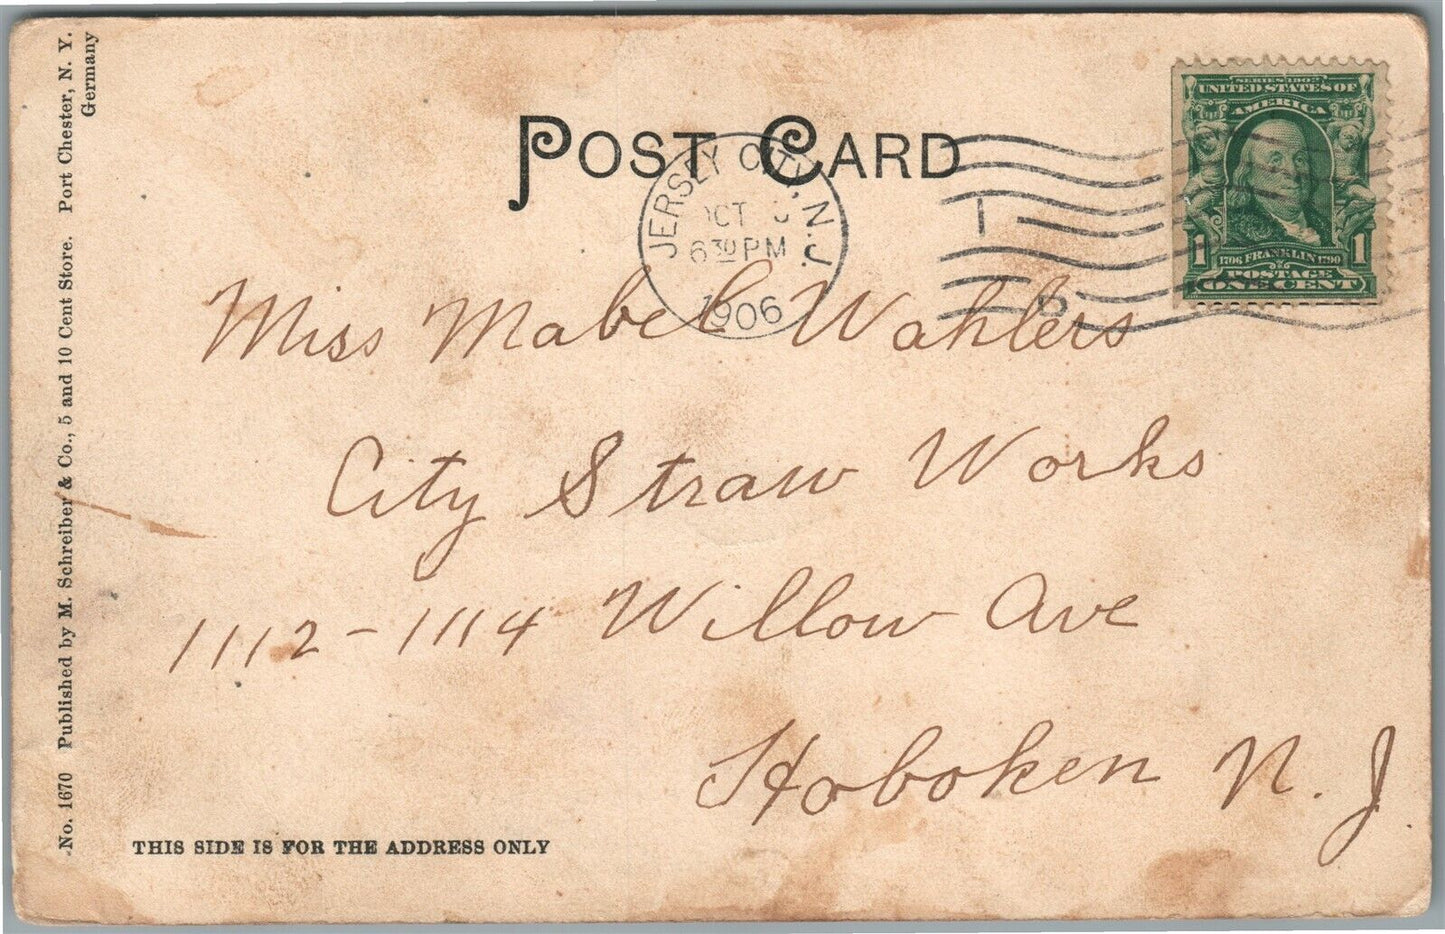 No. 1670 Published by M. Schreiber & Co., 5 and 10 Cent Store. Port Chester, N. Y.
Germany
POST CARD
JERSEY CITY, N.J.
OCT
6 30 PM
1906
SERIES 1902
UNITED STATES OF
AMERICA
1 1
1706 FRANKLIN 1790
POSTAGE
ONE CENT
Miss Mabel Wahlers
City Straw Works
1112-1114 Willow Ave
Hoboken N. J.
THIS SIDE IS FOR THE ADDRESS ONLY